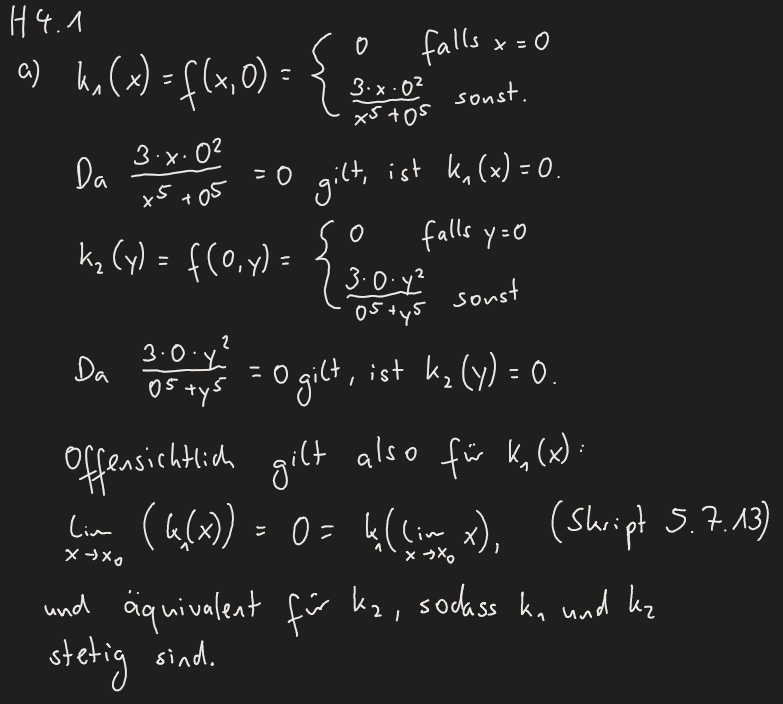 H 4.1
a) k₁(x) = f(x,0) = { 0 falls x = 0
3·x·0² / x⁵+0⁵ sonst.
Da 3·x·0² / x⁵+0⁵ = 0 gilt, ist k₁(x) = 0.
k₂(y) = f(0,y) = { 0 falls y=0
3·0·y² / 0⁵+y⁵ sonst
Da 3·0·y² / 0⁵+y⁵ = 0 gilt, ist k₂(y) = 0.
Offensichtlich gilt also für k₁(x):
lim x→x₀ (k₁(x)) = 0 = k₁(lim x→x₀ x), (Skript 5.7.13)
und äquivalent für k₂, sodass k₁ und k₂
stetig sind.